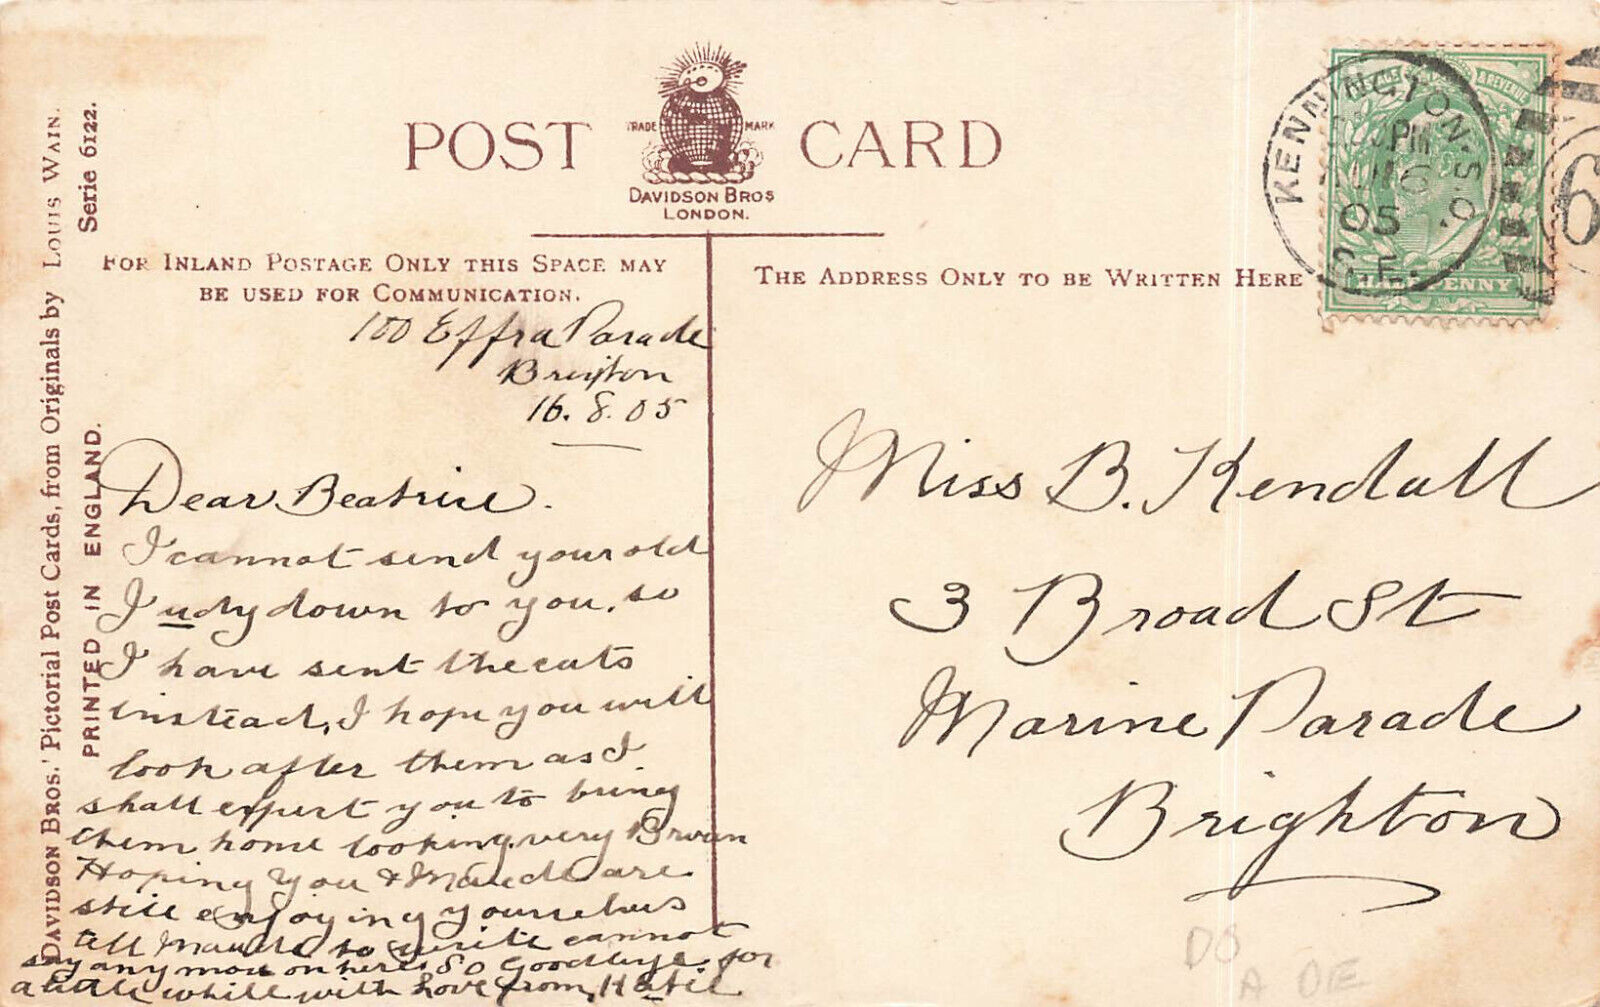 POST CARD
TRADE MARK
DAVIDSON BROS
LONDON.
FOR INLAND POSTAGE ONLY THIS SPACE MAY
BE USED FOR COMMUNICATION.
THE ADDRESS ONLY TO BE WRITTEN HERE
DAVIDSON BROS.' Pictorial Post Cards, from Originals by LOUIS WAIN.
Serie 6122.
PRINTED IN ENGLAND.
& REVENUE
HALFPENNY
KENNINGTON S.O.
PM
16
05
S.E.
6
100 Effra Parade
Brixton
16.8.05
Dear Beatrice.
I cannot send your old
Judy down to you, so
I have sent the cats
instead, I hope you will
look after them as I
shall expect you to bring
them home looking very Brown
Hoping you & Maude are
still enjoying yourselves
tell Maude to write cannot
say any more on here. So Goodbye for
a little while with love from Hatie
Miss B. Kendall
3 Broad St
Marine Parade
Brighton
DS
A DE